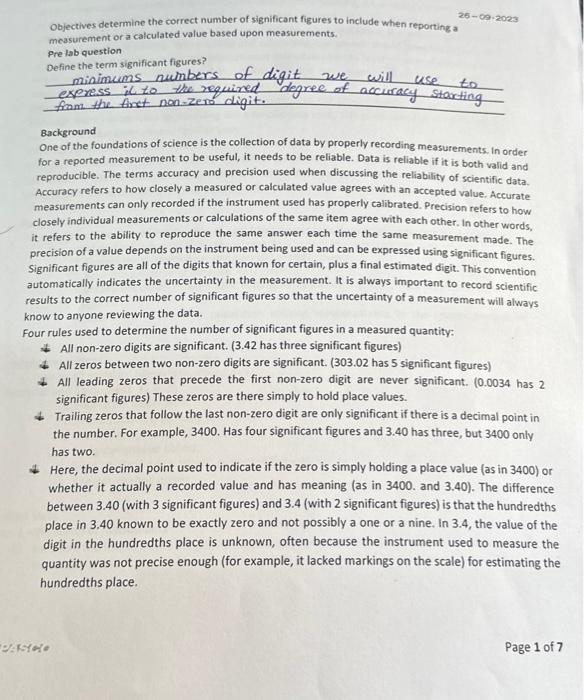 26-09-2023
Objectives determine the correct number of significant figures to include when reporting a
measurement or a calculated value based upon measurements.
Pre lab question
Define the term significant figures?
minimums numbers of digit we will use to
express it to the required degree of accuracy starting
from the first non-zero digit.
Background
One of the foundations of science is the collection of data by properly recording measurements. In order
for a reported measurement to be useful, it needs to be reliable. Data is reliable if it is both valid and
reproducible. The terms accuracy and precision used when discussing the reliability of scientific data.
Accuracy refers to how closely a measured or calculated value agrees with an accepted value. Accurate
measurements can only recorded if the instrument used has properly calibrated. Precision refers to how
closely individual measurements or calculations of the same item agree with each other. In other words,
it refers to the ability to reproduce the same answer each time the same measurement made. The
precision of a value depends on the instrument being used and can be expressed using significant figures.
Significant figures are all of the digits that known for certain, plus a final estimated digit. This convention
automatically indicates the uncertainty in the measurement. It is always important to record scientific
results to the correct number of significant figures so that the uncertainty of a measurement will always
know to anyone reviewing the data.
Four rules used to determine the number of significant figures in a measured quantity:
All non-zero digits are significant. (3.42 has three significant figures)
All zeros between two non-zero digits are significant. (303.02 has 5 significant figures)
All leading zeros that precede the first non-zero digit are never significant. (0.0034 has 2
significant figures) These zeros are there simply to hold place values.
Trailing zeros that follow the last non-zero digit are only significant if there is a decimal point in
the number. For example, 3400. Has four significant figures and 3.40 has three, but 3400 only
has two.
Here, the decimal point used to indicate if the zero is simply holding a place value (as in 3400) or
whether it actually a recorded value and has meaning (as in 3400. and 3.40). The difference
between 3.40 (with 3 significant figures) and 3.4 (with 2 significant figures) is that the hundredths
place in 3.40 known to be exactly zero and not possibly a one or a nine. In 3.4, the value of the
digit in the hundredths place is unknown, often because the instrument used to measure the
quantity was not precise enough (for example, it lacked markings on the scale) for estimating the
hundredths place.
Page 1 of 7